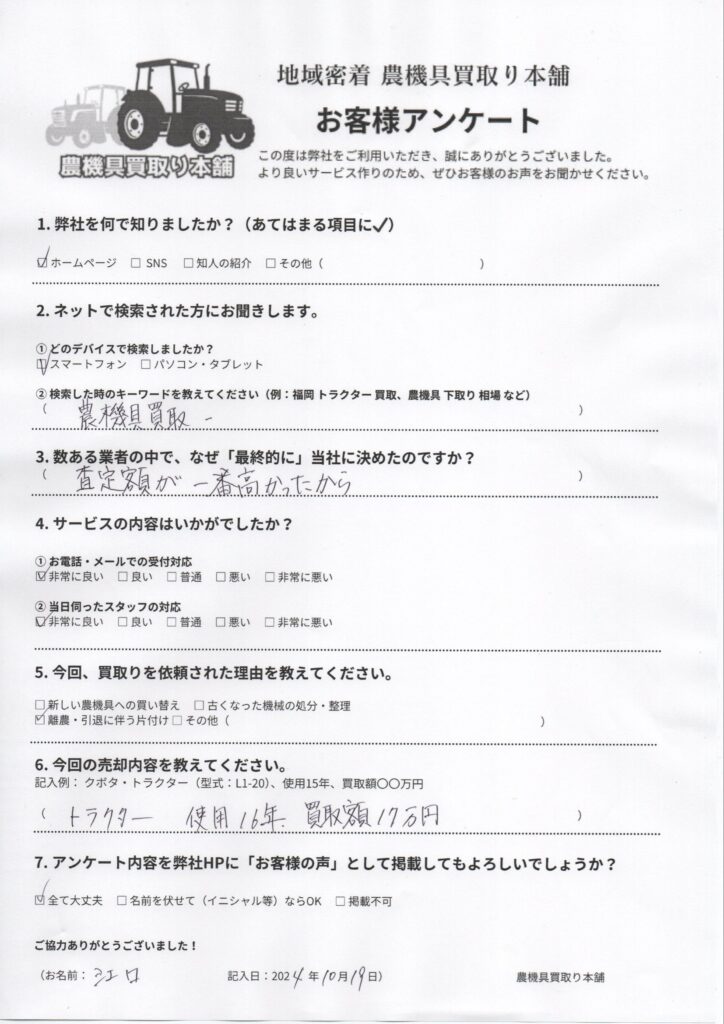 地域密着 農機具買取り本舗
お客様アンケート
農機具買取り本舗
この度は弊社をご利用いただき、誠にありがとうございました。
より良いサービス作りのため、ぜひお客様のお声をお聞かせください。
1. 弊社を何で知りましたか？（あてはまる項目に✓）
☑ホームページ □ SNS □知人の紹介 □その他（ ）
2. ネットで検索された方にお聞きします。
① どのデバイスで検索しましたか？
☑スマートフォン □パソコン・タブレット
② 検索した時のキーワードを教えてください（例：福岡 トラクター 買取、農機具 下取り 相場 など）
（ 農機具買取 ）
3. 数ある業者の中で、なぜ「最終的に」当社に決めたのですか？
（ 査定額が一番高かったから ）
4. サービスの内容はいかがでしたか？
① お電話・メールでの受付対応
☑非常に良い □良い □普通 □悪い □非常に悪い
② 当日伺ったスタッフの対応
☑非常に良い □良い □普通 □悪い □非常に悪い
5. 今回、買取りを依頼された理由を教えてください。
□新しい農機具への買い替え □古くなった機械の処分・整理
☑離農・引退に伴う片付け □その他（ ）
6. 今回の売却内容を教えてください。
記入例： クボタ・トラクター（型式：L1-20）、使用15年、買取額〇〇万円
（ トラクター 使用16年、買取額17万円 ）
7. アンケート内容を弊社HPに「お客様の声」として掲載してもよろしいでしょうか？
☑全て大丈夫 □名前を伏せて（イニシャル等）ならOK □掲載不可
ご協力ありがとうございました！
（お名前： 記入日：2024年10月19日） 農機具買取り本舗